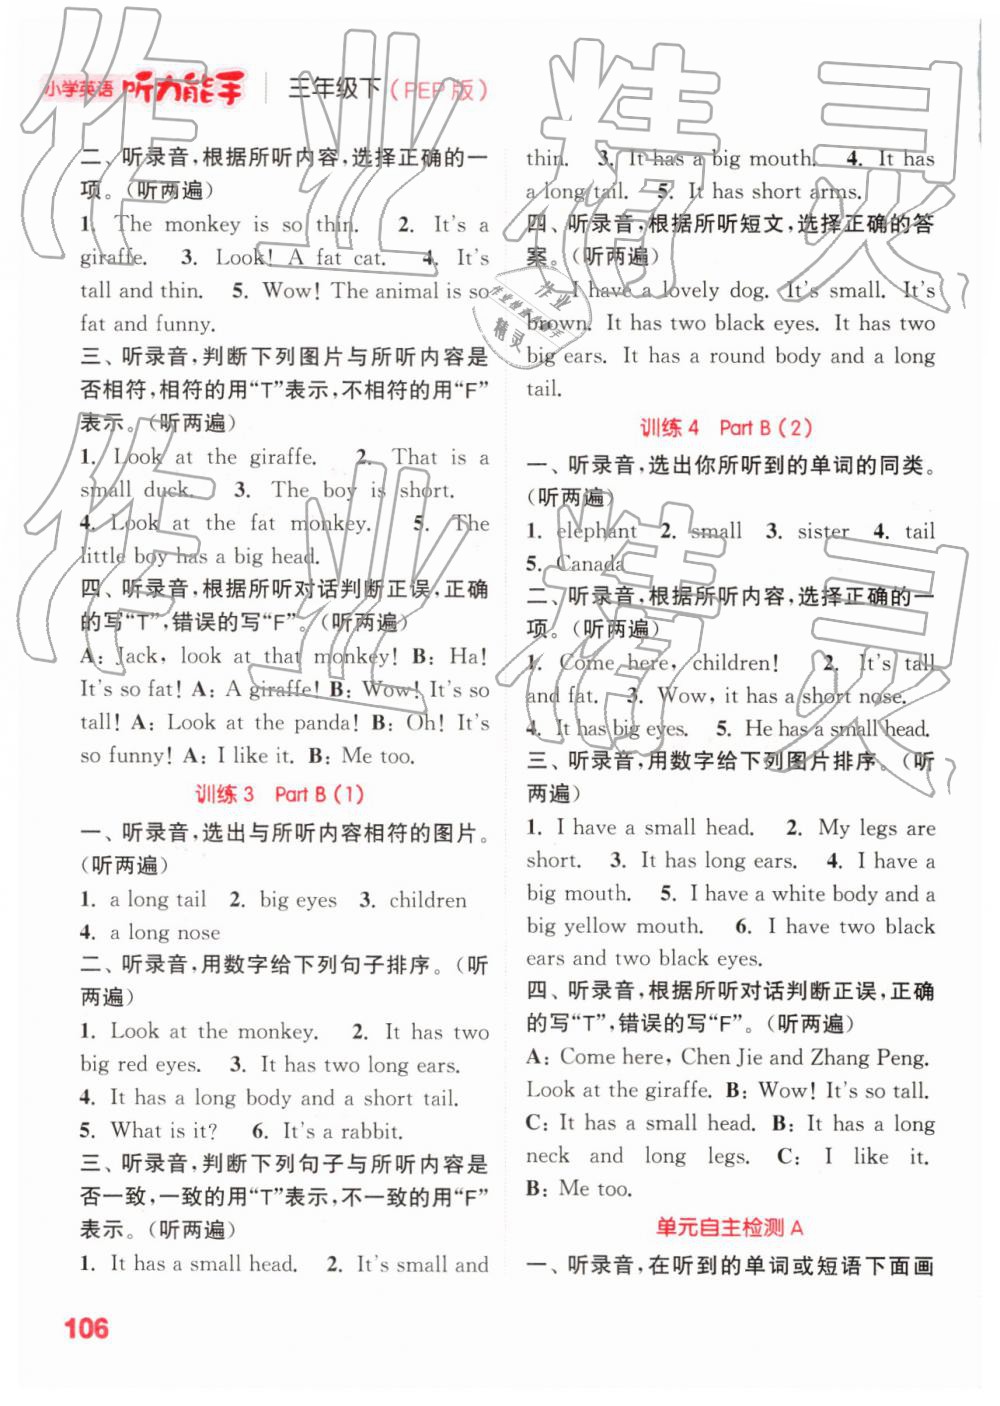 小学英语 听力能手 三年级下(PEP版)
二、听录音,根据所听内容,选择正确的一
项。(听两遍)
1. The monkey is so thin. 2. It's a
giraffe. 3. Look! A fat cat. 4. It's
tall and thin. 5. Wow! The animal is so
fat and funny.
三、听录音,判断下列图片与所听内容是
否相符,相符的用“T”表示,不相符的用“F”
表示。(听两遍)
1. Look at the giraffe. 2. That is a
small duck. 3. The boy is short.
4. Look at the fat monkey. 5. The
little boy has a big head.
四、听录音,根据所听对话判断正误,正确
的写“T”,错误的写“F”。(听两遍)
A: Jack, look at that monkey! B: Ha!
It's so fat! A: A giraffe! B: Wow! It's so
tall! A: Look at the panda! B: Oh! It's
so funny! A: I like it. B: Me too.
训练3 Part B(1)
一、听录音,选出与所听内容相符的图片。
(听两遍)
1. a long tail 2. big eyes 3. children
4. a long nose
二、听录音,用数字给下列句子排序。(听
两遍)
1. Look at the monkey. 2. It has two
big red eyes. 3. It has two long ears.
4. It has a long body and a short tail.
5. What is it? 6. It's a rabbit.
三、听录音,判断下列句子与所听内容是
否一致,一致的用“T”表示,不一致的用“F”
表示。(听两遍)
1. It has a small head. 2. It's small and
thin. 3. It has a big mouth. 4. It has
a long tail. 5. It has short arms.
四、听录音,根据所听短文,选择正确的答
案。(听两遍)
I have a lovely dog. It's small. It's
brown. It has two black eyes. It has two
big ears. It has a round body and a long
tail.
训练4 Part B(2)
一、听录音,选出你所听到的单词的同类。
(听两遍)
1. elephant 2. small 3. sister 4. tail
5. Canada
二、听录音,根据所听内容,选择正确的一
项。(听两遍)
1. Come here, children! 2. It's tall
and fat. 3. Wow, it has a short nose.
4. It has big eyes. 5. He has a small head.
三、听录音,用数字给下列图片排序。(听
两遍)
1. I have a small head. 2. My legs are
short. 3. It has long ears. 4. I have a
big mouth. 5. I have a white body and a
big yellow mouth. 6. I have two black
ears and two black eyes.
四、听录音,根据所听对话判断正误,正确
的写“T”,错误的写“F”。(听两遍)
A: Come here, Chen Jie and Zhang Peng.
Look at the giraffe. B: Wow! It's so tall.
C: It has a small head. B: It has a long
neck and long legs. C: I like it.
B: Me too.
单元自主检测A
一、听录音,在听到的单词或短语下面画
106
作业精灵
作业精灵